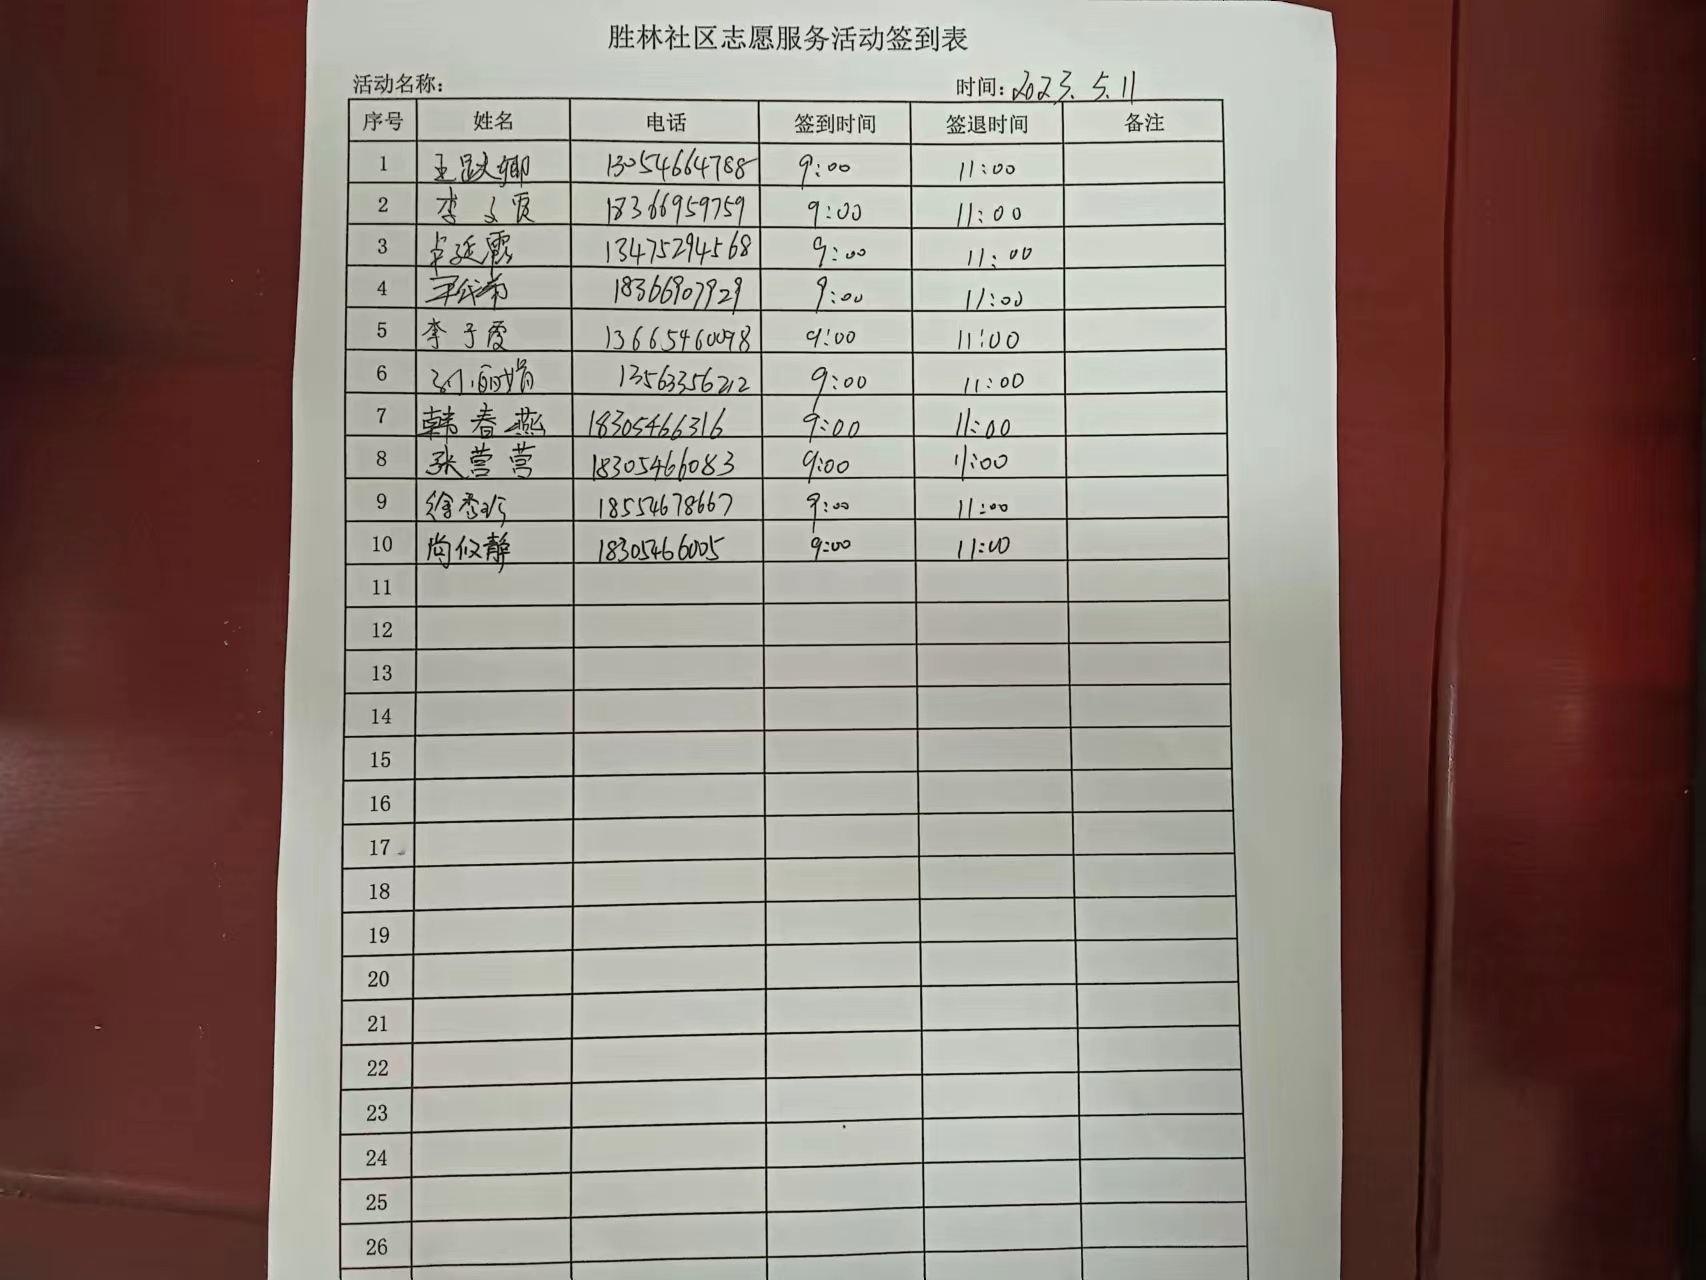 胜林社区志愿服务活动签到表
活动名称: 时间: 2023.5.11
序号 姓名 电话 签到时间 签退时间 备注
1 13054664788 9:00 11:00
2 李文霞 18366959759 9:00 11:00
3 卢延霞 13475294568 9:00 11:00
4 18366907929 9:00 11:00
5 李子霞 13665460098 9:00 11:00
6 孙丽娟 13563356212 9:00 11:00
7 韩春燕 18305466316 9:00 11:00
8 张营营 18305466083 9:00 11:00
9 徐秀珍 18554678667 9:00 11:00
10 尚仪静 18305466005 9:00 11:00
11
12
13
14
15
16
17
18
19
20
21
22
23
24
25
26